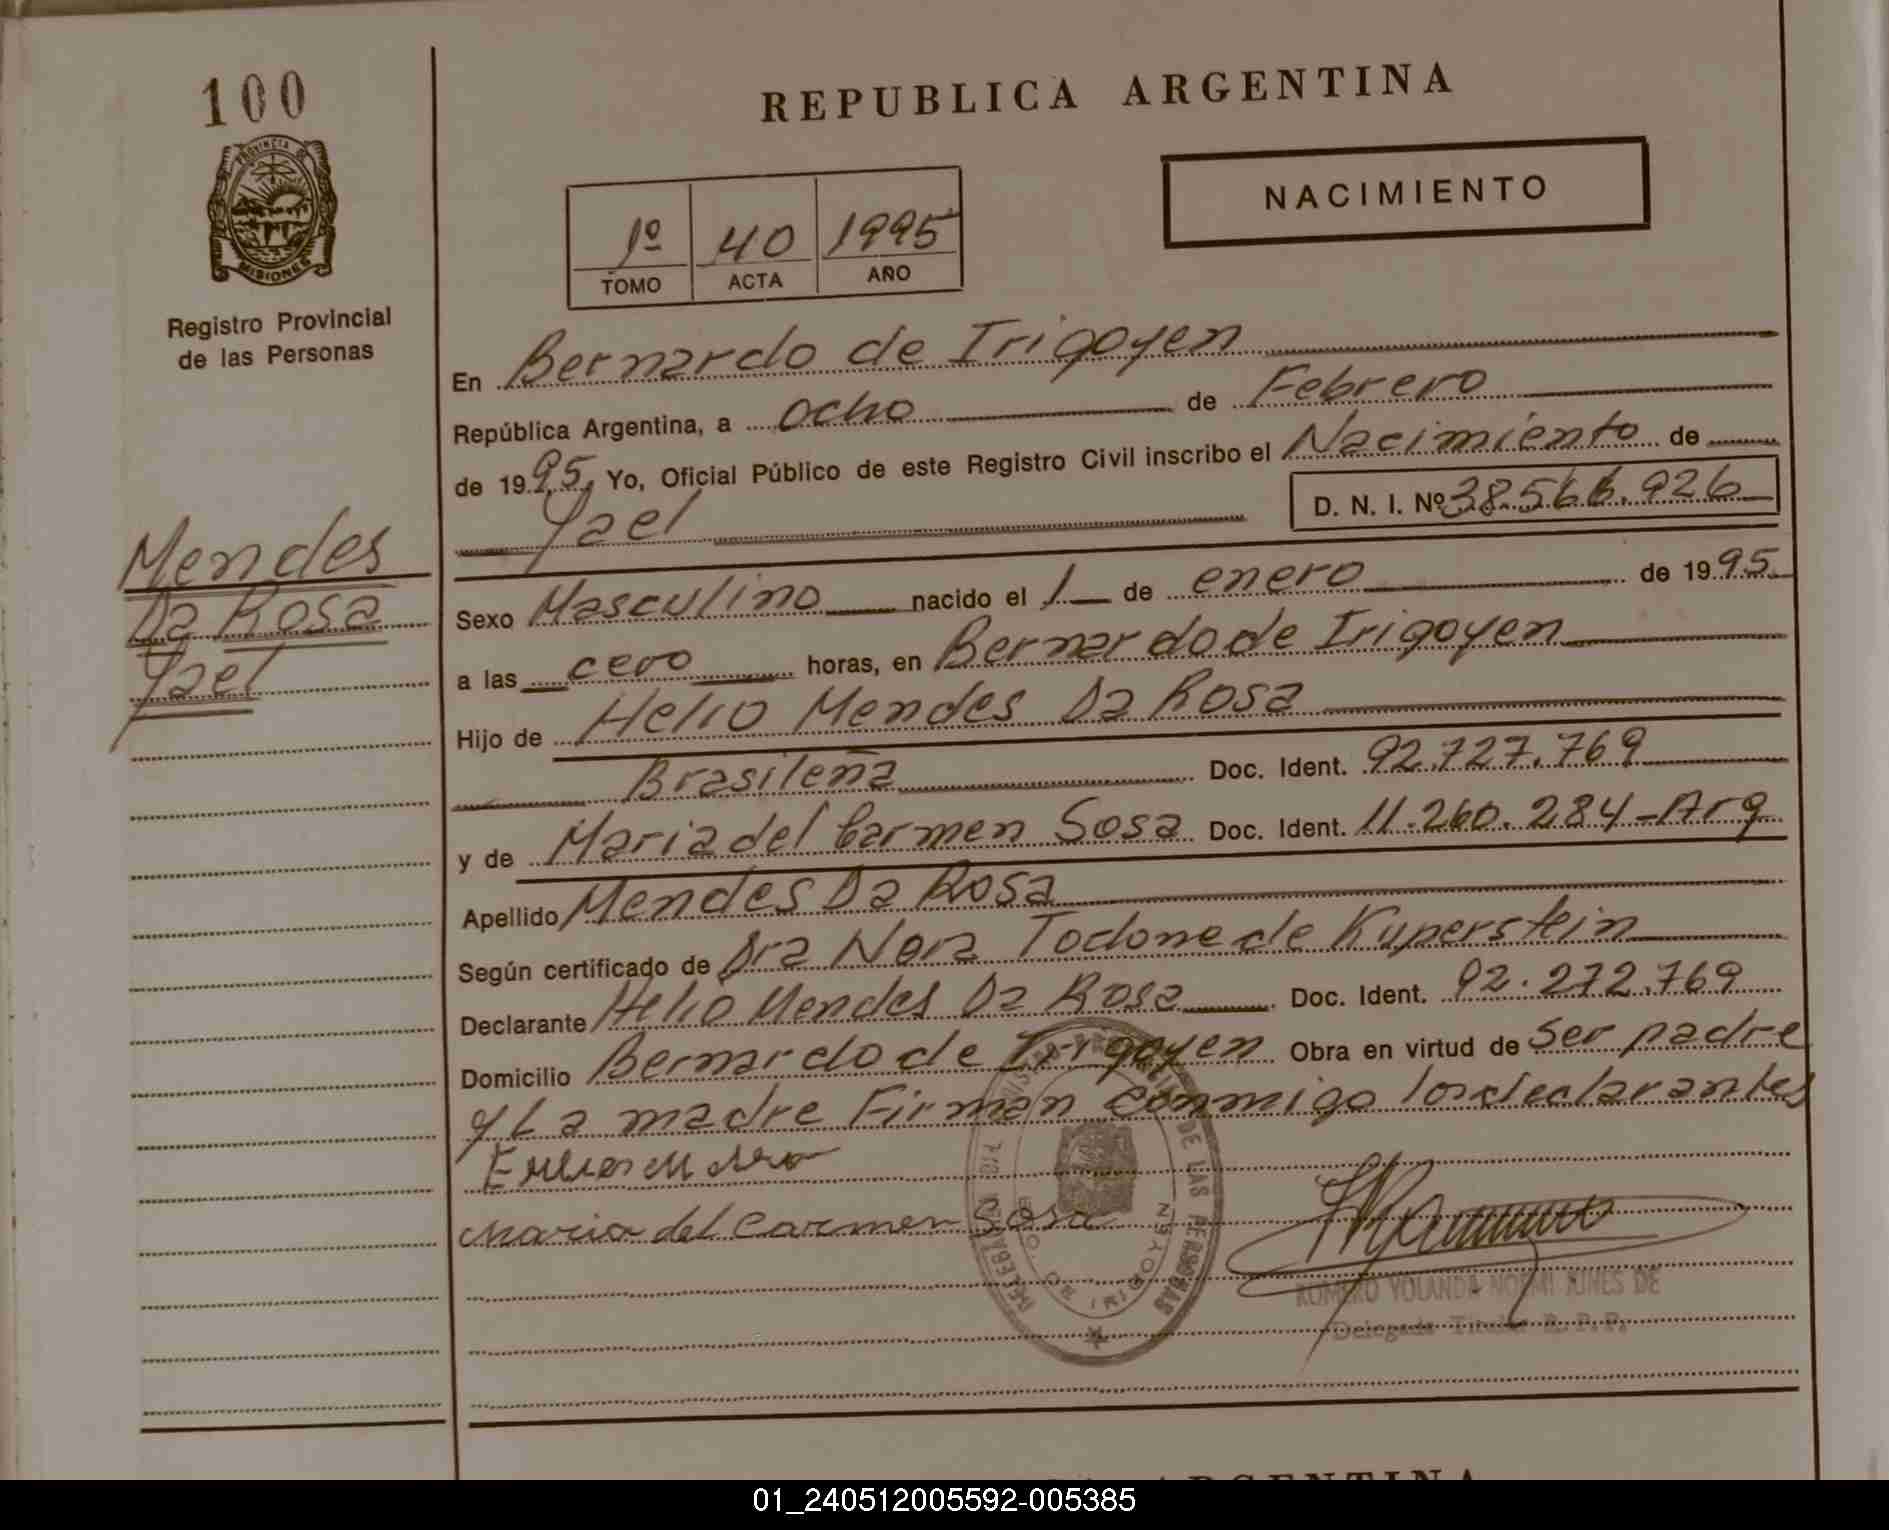 100
PROVINCIA DE
MISIONES
Registro Provincial
de las Personas
Mendes
Da Rosa
Yael
REPUBLICA ARGENTINA
NACIMIENTO
1º 40 1995
TOMO ACTA AÑO
En Bernardo de Irigoyen
República Argentina, a ocho de Febrero
de 1995. Yo, Oficial Público de este Registro Civil inscribo el Nacimiento de
Yael D. N. I. Nº 38.566.926
Sexo Masculino nacido el 1 de enero de 1995
a las cero horas, en Bernardo de Irigoyen
Hijo de Helio Mendes Da Rosa
Brasileña Doc. Ident. 92.727.769
y de Maria del Carmen Sosa Doc. Ident. 11.260.284-Arg
Apellido Mendes Da Rosa
Según certificado de Dra Nora Todone de Kuperstein
Declarante Helio Mendes Da Rosa Doc. Ident. 92.272.769
Domicilio Bernardo de Irigoyen Obra en virtud de ser padre
y La madre Firman conmigo los declarantes
Maria del Carmen Sosa
DE LAS PERSONAS
BDO. DE IRIGOYEN
ROMERO YOLANDA NOEMI KUNES DE
Delegada Titular R. P. P.
ARGENTINA
01_240512005592-005385